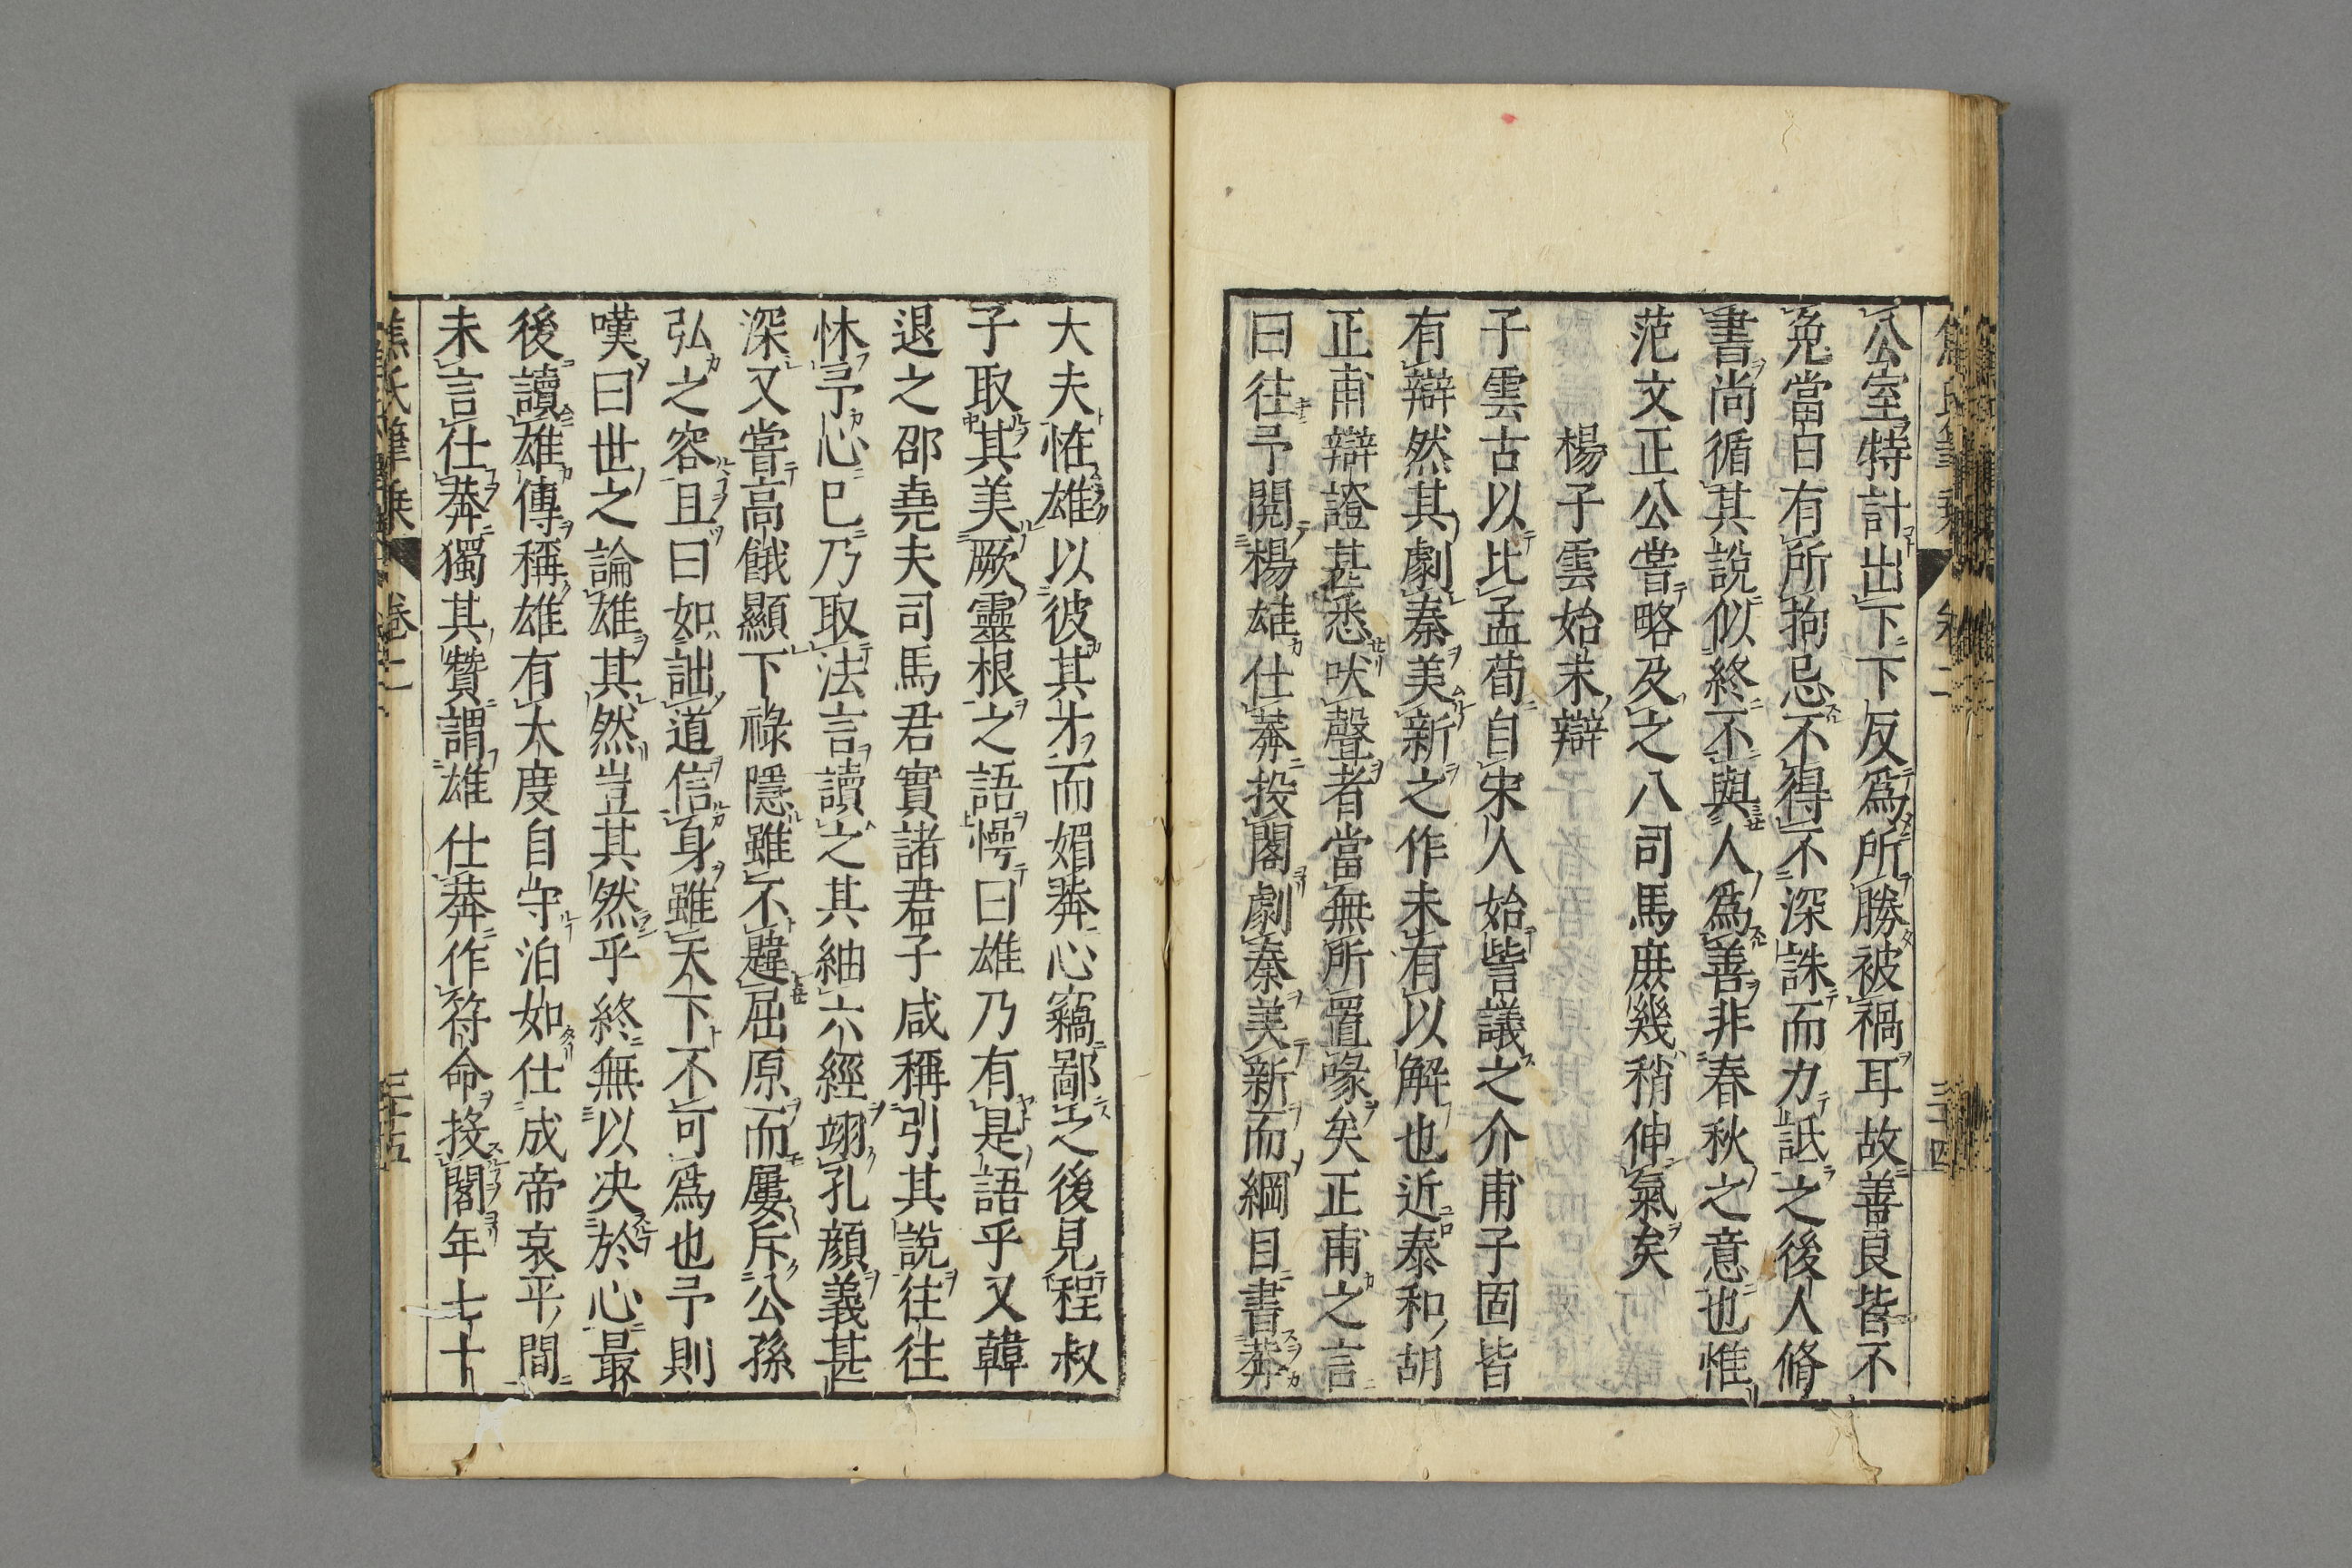 公室特計出下下反爲所勝被禍耳故善良皆不
免當白有所拘忌不得不深誅而力詆之後人脩
書尚循其說似終不與人爲善非春秋之意也惟
范文正公甞略及之八司馬庶幾稍伸氣矣
楊子雲始末辯
子雲古以比孟荀自宋人始訾議之介甫子固皆
有辯然其劇秦美新之作未有以解也近泰和胡
正甫辯證甚悉吠聲者當無所置喙矣正甫之言
曰往予閱楊雄仕莽投閣劇秦美新而綱目書莽
大夫恠雄以彼其才而媚莽心竊鄙之後見程叔
子取其美厥靈根之語愕曰雄乃有是語乎又韓
退之邵堯夫司馬君實諸君子咸稱引其說往往
怵予心已乃取法言讀之其紬六經翊孔顔義甚
深又嘗高餓顯下祿隱雖不韙屈原而屢斥公孫
弘之容且曰如詘道信身雖天下不可爲也予則
嘆曰世之論雄其然豈其然乎終無以决於心最
後讀雄傳稱雄有大度自守泊如仕成帝哀平間
未言仕莽獨其贊謂雄仕莽作符命投閣年七十
焦氏筆乗 卷二 三十五